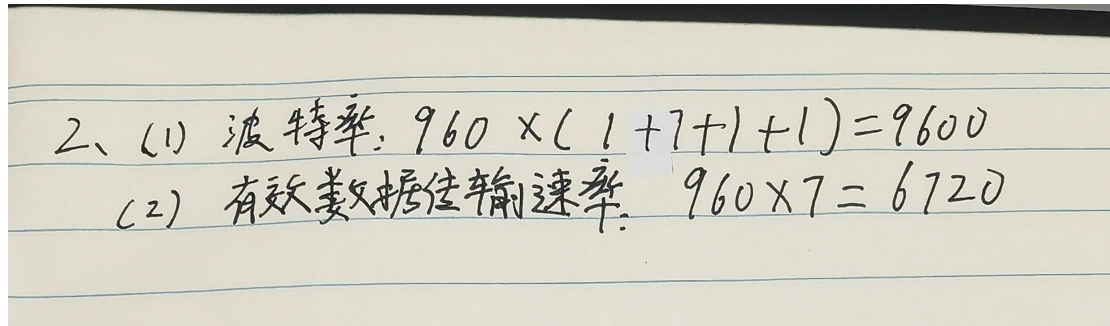 2、(1) 波特率: 960 × ( 1 +7+1+1)=9600
(2) 有效数据传输速率: 960×7= 6720